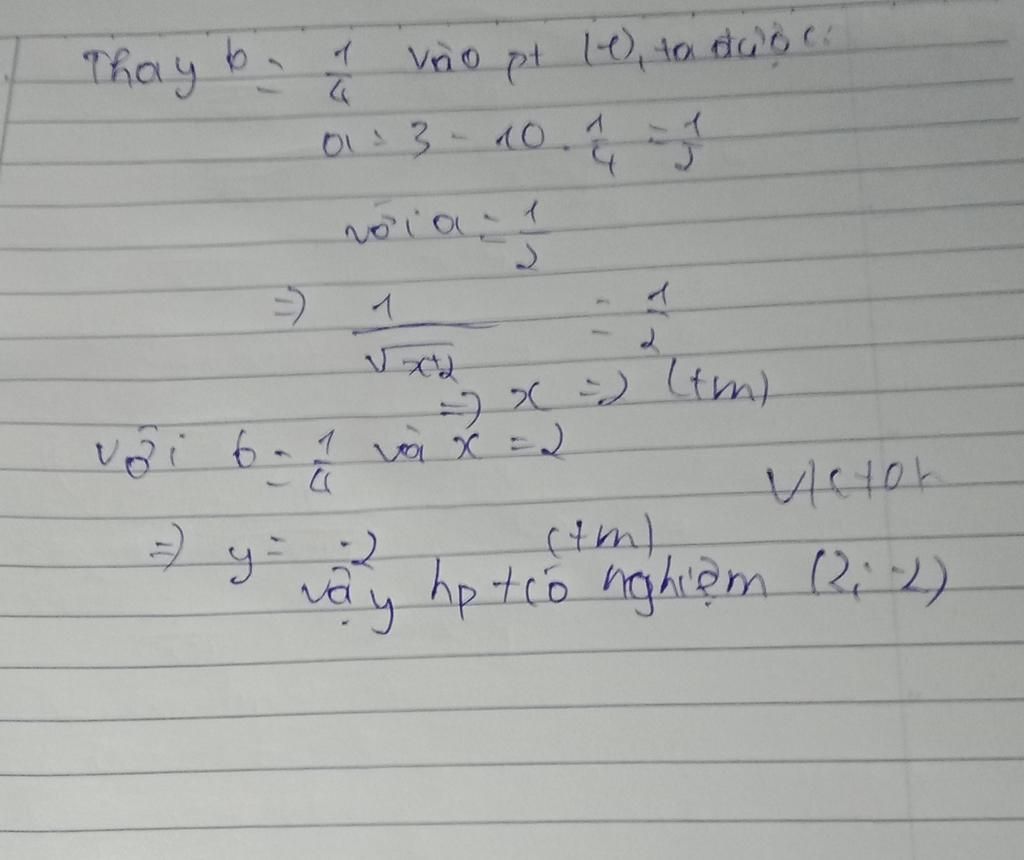 Thay b = 1/4 vào pt (1), ta được:
a = 3 - 10 . 1/4 = 1/2
với a = 1/2
=> 1/√(x+2) = 1/2
=> x = 2 (tm)
với b = 1/4 và x = 2
Victor
=> y = -2 (tm)
vậy hpt có nghiệm (2; -2)